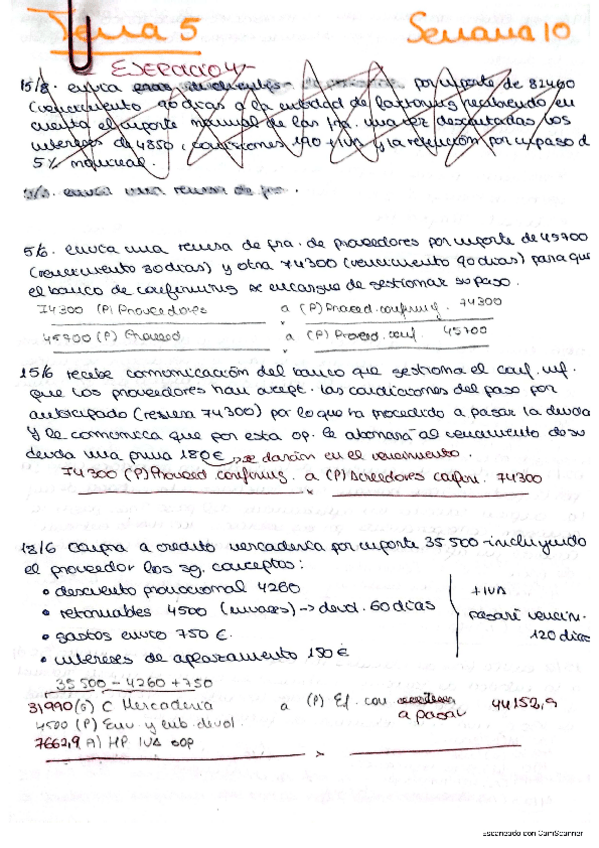 Tema 5 Semana 10
EJERCICIO 4
15/8. envía por importe de 82400
(vencimiento 90 dias a la entidad de factoring recibiendo en
cuenta el importe de las fra. una vez descontadas los
intereses de 4850, comisiones 190 + IVA y la retención por impago d
5%
5/6. envía una remesa de fra. de proveedores por importe de 45700
(vencimiento 30 dias) y otra 74300 (vencimiento 90 dias) para que
el banco de confirming se encargue de gestionar su pago.
74300 (P) Proveedores a (P) Proveed. confirming. 74300
45700 (P) Proveed a (P) Proveed. conf. 45700
15/6 recibe comunicación del banco que gestiona el conf.
que los proveedores han acept. las condiciones del pago por
anticipado (remesa 74300) por lo que ha procedido a pagar la deuda
y le comunica que por esta op. le abonará al vencimiento de su
deuda una prima 180€ → se darán en el vencimiento.
74300 (P) Proveed confirming. a (P) Acreedores confir. 74300
18/6 compra a credito mercaderia por importe 35500 incluyendo
el proveedor los sg. conceptos:
• descuento promocional 4260
• retornables 4500 (envases) → devol. 60 dias
• gastos envío 750 €.
• intereses de aplazamiento 180 €
+ IVA
pagaré vencim.
120 dias
35500 - 4260 + 750
31990 (G) C Mercaderia a (P) Ef. com a pagar 44152,9
4500 (P) Env y emb devol.
7662,9 A) HP IVA sop
Escaneado con CamScanner